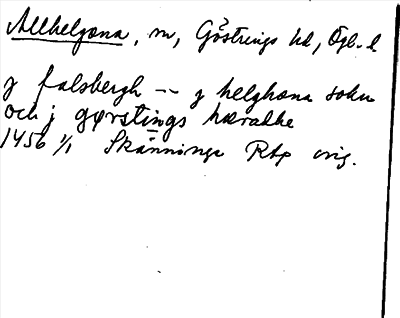 Allhelgona, sn, Göstrings hd, Ögl. l
y falsbergh -- y helghona sokn
och j gørstings hæradhe
1456 1/1 Skänninge Råp orig.